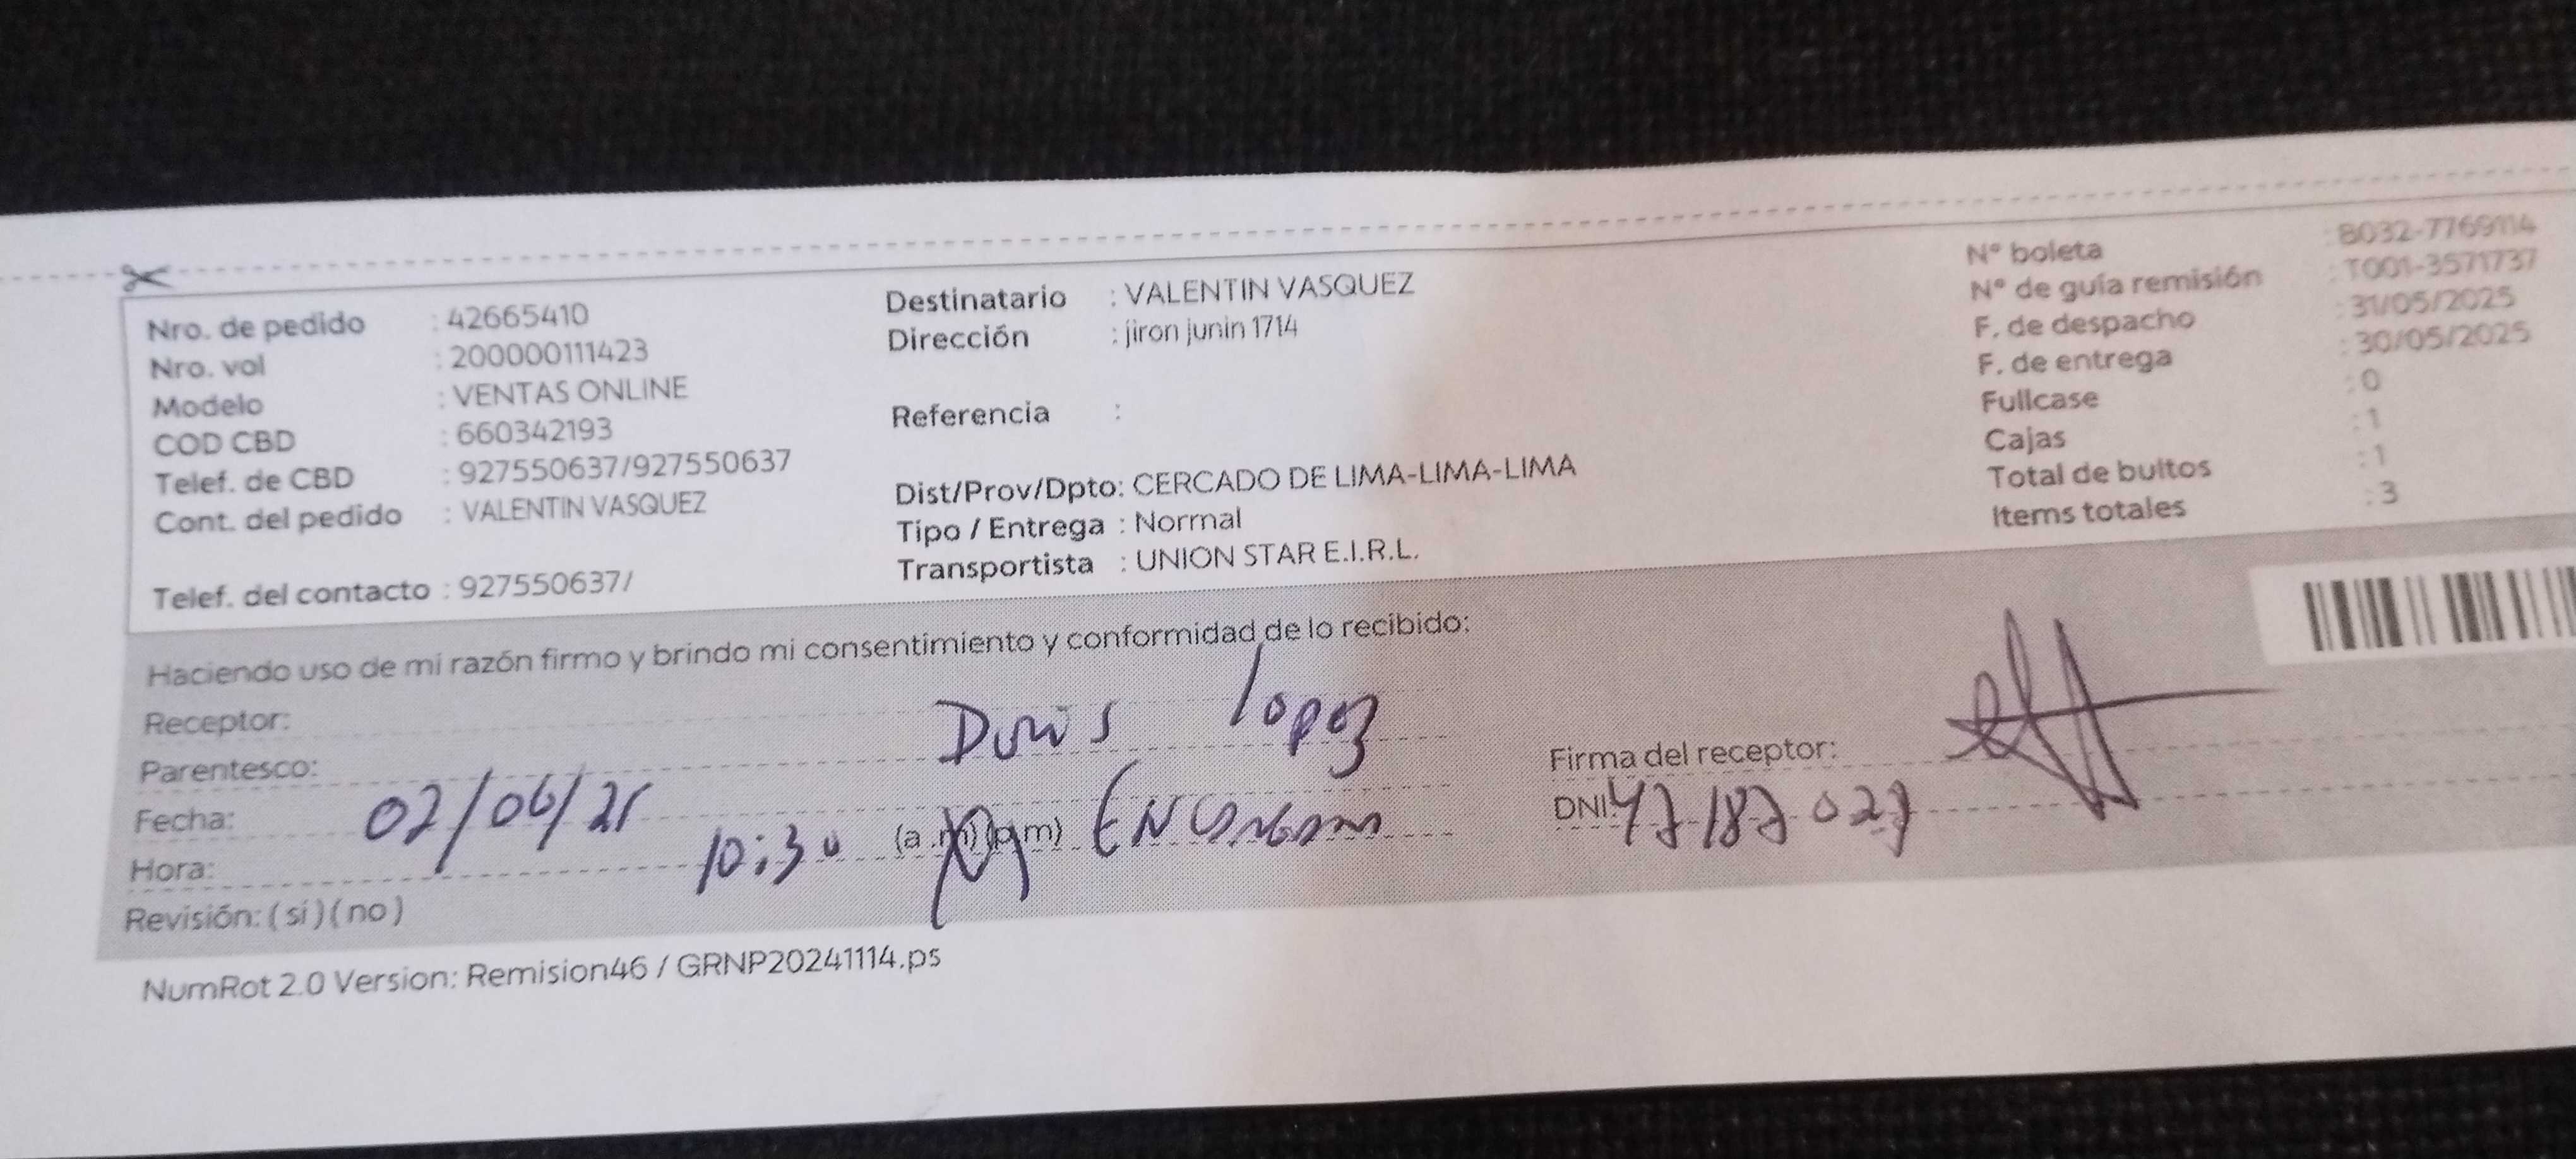 Nro. de pedido : 42665410
Nro. vol : 200000111423
Modelo : VENTAS ONLINE
COD CBD : 660342193
Telef. de CBD : 927550637/927550637
Cont. del pedido : VALENTIN VASQUEZ
Telef. del contacto : 927550637/
Destinatario : VALENTIN VASQUEZ
Dirección : jiron junin 1714
Referencia :
Dist/Prov/Dpto: CERCADO DE LIMA-LIMA-LIMA
Tipo / Entrega : Normal
Transportista : UNION STAR E.I.R.L.
N° boleta : B032-7769114
N° de guía remisión : T001-3571737
F. de despacho : 31/05/2025
F. de entrega : 30/05/2025
Fullcase : 0
Cajas : 1
Total de bultos : 1
Items totales : 3
Haciendo uso de mi razón firmo y brindo mi consentimiento y conformidad de lo recibido:
Receptor: Doris lopez
Parentesco:
Fecha: 02/06/25
Hora: 10:30 (a.m) (p.m)
Revisión: ( si ) ( no )
Firma del receptor:
DNI: 47187027
NumRot 2.0 Version: Remision46 / GRNP20241114.ps